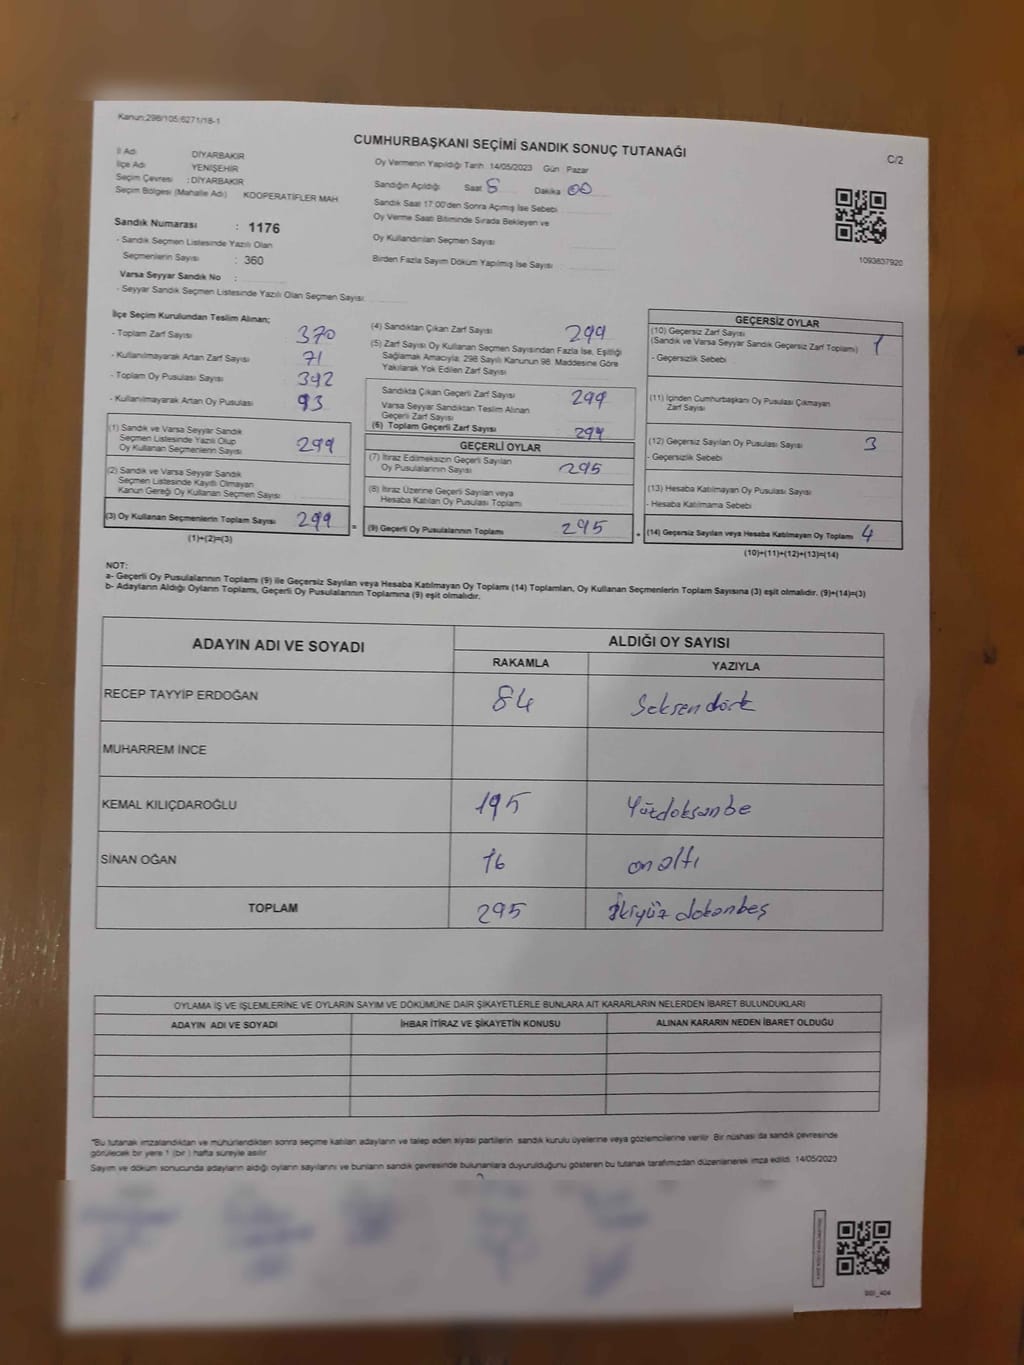 Kanun:298/105;6271/18-1
CUMHURBAŞKANI SEÇİMİ SANDIK SONUÇ TUTANAĞI
C/2
İl Adı DİYARBAKIR
İlçe Adı YENİŞEHİR
Seçim Çevresi : DİYARBAKIR
Seçim Bölgesi (Mahalle Adı) KOOPERATİFLER MAH
Sandık Numarası : 1176
- Sandık Seçmen Listesinde Yazılı Olan
Seçmenlerin Sayısı : 360
Varsa Seyyar Sandık No :
- Seyyar Sandık Seçmen Listesinde Yazılı Olan Seçmen Sayısı
Oy Vermenin Yapıldığı Tarih 14/05/2023 Gün Pazar
Sandığın Açıldığı Saat 8 Dakika 00
Sandık Saat 17:00'den Sonra Açımış İse Sebebi
Oy Verme Saati Bitiminde Sırada Bekleyen ve
Oy Kullandırılan Seçmen Sayısı
Birden Fazla Sayım Döküm Yapılmış İse Sayısı
1093837920
İlçe Seçim Kurulundan Teslim Alınan;
- Toplam Zarf Sayısı 370
- Kullanılmayarak Artan Zarf Sayısı 71
- Toplam Oy Pusulası Sayısı 392
- Kullanılmayarak Artan Oy Pusulası 93
(1) Sandık ve Varsa Seyyar Sandık
Seçmen Listesinde Yazılı Olup
Oy Kullanan Seçmenlerin Sayısı 299
(2) Sandık ve Varsa Seyyar Sandık
Seçmen Listesinde Kayıtlı Olmayan
Kanun Gereği Oy Kullanan Seçmen Sayısı
(3) Oy Kullanan Seçmenlerin Toplam Sayısı 299
(1)+(2)=(3)
(4) Sandıktan Çıkan Zarf Sayısı 299
(5) Zarf Sayısı Oy Kullanan Seçmen Sayısından Fazla İse, Eşitliği
Sağlamak Amacıyla; 298 Sayılı Kanunun 98. Maddesine Göre
Yakılarak Yok Edilen Zarf Sayısı
Sandıkta Çıkan Geçerli Zarf Sayısı 299
Varsa Seyyar Sandıktan Teslim Alınan
Geçerli Zarf Sayısı
(6) Toplam Geçerli Zarf Sayısı 299
GEÇERLİ OYLAR
(7) İtiraz Edilmeksizin Geçerli Sayılan
Oy Pusulalarının Sayısı 295
(8) İtiraz Üzerine Geçerli Sayılan veya
Hesaba Katılan Oy Pusulası Toplamı
= (9) Geçerli Oy Pusulalarının Toplamı 295
GEÇERSİZ OYLAR
(10) Geçersiz Zarf Sayısı
(Sandık ve Varsa Seyyar Sandık Geçersiz Zarf Toplamı) 1
- Geçersizlik Sebebi
(11) İçinden Cumhurbaşkanı Oy Pusulası Çıkmayan
Zarf Sayısı
(12) Geçersiz Sayılan Oy Pusulası Sayısı 3
- Geçersizlik Sebebi
(13) Hesaba Katılmayan Oy Pusulası Sayısı
- Hesaba Katılmama Sebebi
+ (14) Geçersiz Sayılan veya Hesaba Katılmayan Oy Toplamı 4
(10)+(11)+(12)+(13)=(14)
NOT:
a- Geçerli Oy Pusulalarının Toplamı (9) ile Geçersiz Sayılan veya Hesaba Katılmayan Oy Toplamı (14) Toplamları, Oy Kullanan Seçmenlerin Toplam Sayısına (3) eşit olmalıdır. (9)+(14)=(3)
b- Adayların Aldığı Oyların Toplamı, Geçerli Oy Pusulalarının Toplamına (9) eşit olmalıdır.
ADAYIN ADI VE SOYADI ALDIĞI OY SAYISI
RAKAMLA YAZIYLA
RECEP TAYYİP ERDOĞAN 84 Seksendört
MUHARREM İNCE
KEMAL KILIÇDAROĞLU 195 Yüzdoksanbe
SİNAN OĞAN 16 on altı
TOPLAM 295 İkiyüz doksanbeş
OYLAMA İŞ VE İŞLEMLERİNE VE OYLARIN SAYIM VE DÖKÜMÜNE DAİR ŞİKAYETLERLE BUNLARA AİT KARARLARIN NELERDEN İBARET BULUNDUKLARI
ADAYIN ADI VE SOYADI İHBAR İTİRAZ VE ŞİKAYETİN KONUSU ALINAN KARARIN NEDEN İBARET OLDUĞU
"Bu tutanak imzalandıktan ve mühürlendikten sonra seçime katılan adayların ve talep eden siyasi partilerin sandık kurulu üyelerine veya gözlemcilerine verilir. Bir nüshası da sandık çevresinde
görülecek bir yere 1 (bir) hafta süreyle asılır
Sayım ve döküm sonucunda adayların aldığı oyların sayılarını ve bunların sandık çevresinde bulunanlara duyurulduğunu gösteren bu tutanak tarafımızdan düzenlenerek imza edildi. 14/05/2023